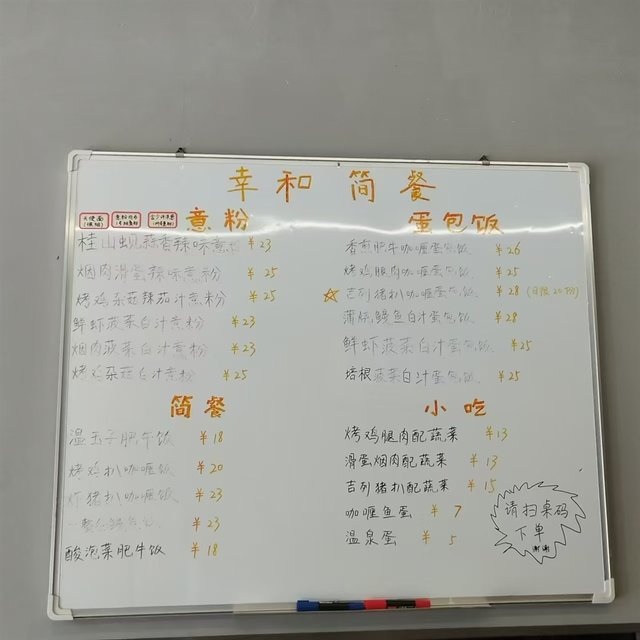 幸和简餐
意粉
桂山蚬蒜香辣味意粉 ¥23
烟肉滑蛋辣味意粉 ¥25
烤鸡杂菇辣茄汁意粉 ¥25
鲜虾菠菜白汁意粉 ¥23
烟肉菠菜白汁意粉 ¥23
烤鸡杂菇白汁意粉 ¥25
简餐
温玉子肥牛饭 ¥18
烤鸡扒咖喱饭 ¥20
炸猪扒咖喱饭 ¥23
¥23
酸泡菜肥牛饭 ¥18
蛋包饭
香煎肥牛咖喱蛋包饭 ¥26
烤鸡腿肉咖喱蛋包饭 ¥25
吉列猪扒咖喱蛋包饭 ¥28 (日限20份)
蒲烧鳗鱼白汁蛋包饭 ¥28
鲜虾菠菜白汁蛋包饭 ¥25
培根菠菜白汁蛋包饭 ¥25
小吃
烤鸡腿肉配蔬菜 ¥13
滑蛋烟肉配蔬菜 ¥13
吉列猪扒配蔬菜 ¥15
咖喱鱼蛋 ¥7
温泉蛋 ¥5
请扫桌码
下单
谢谢